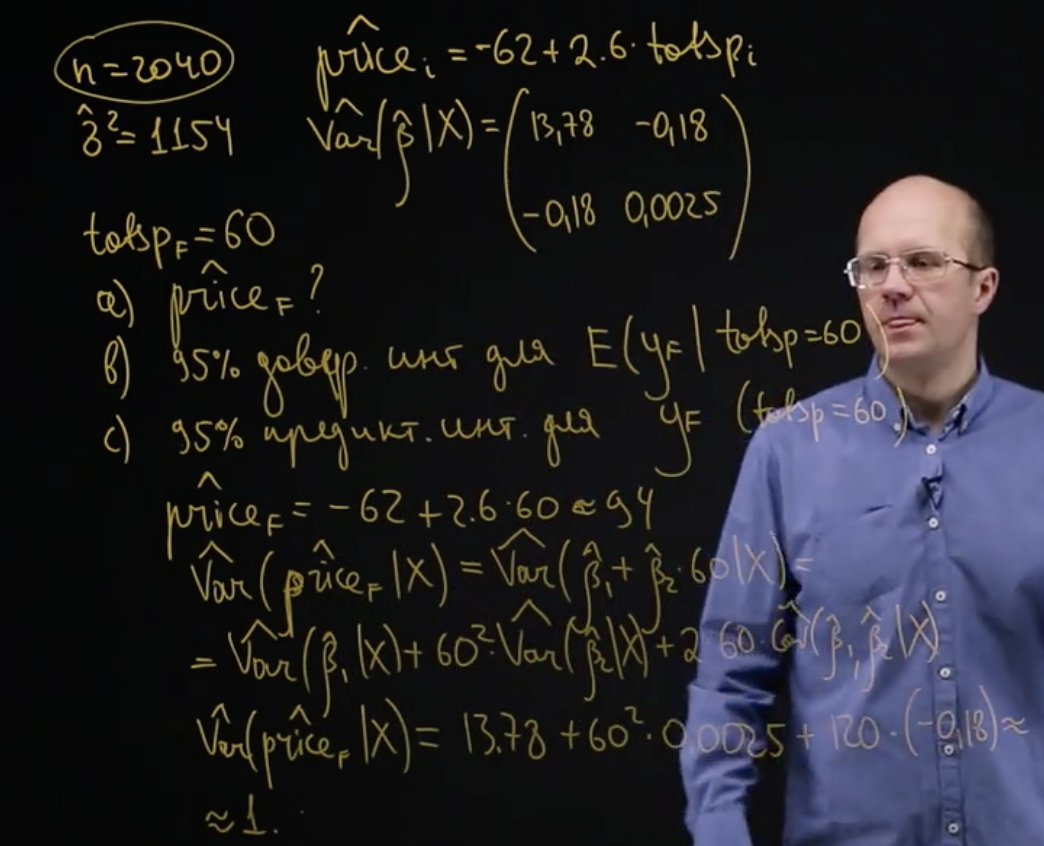 n=2040
σ̂²=1154
p̂riceᵢ = -62+2.6·totspᵢ
V̂ar(β̂|X)=(13,78 -0,18
-0,18 0,0025)
totsp_F=60
a) p̂rice_F?
b) 95% довер. инт для E(y_F|totsp=60)
c) 95% предикт. инт. для y_F (totsp=60)
p̂rice_F = -62+2.6·60≈94
V̂ar(p̂rice_F|X) = V̂ar(β̂₁+β̂₂·60|X)=
= V̂ar(β̂₁|X)+60²·V̂ar(β̂₂|X)+2 60·Ĉov(β̂₁,β̂₂|X)
V̂ar(p̂rice_F|X) = 13.78+60²·0,0025+120·(-0,18)≈
≈1.